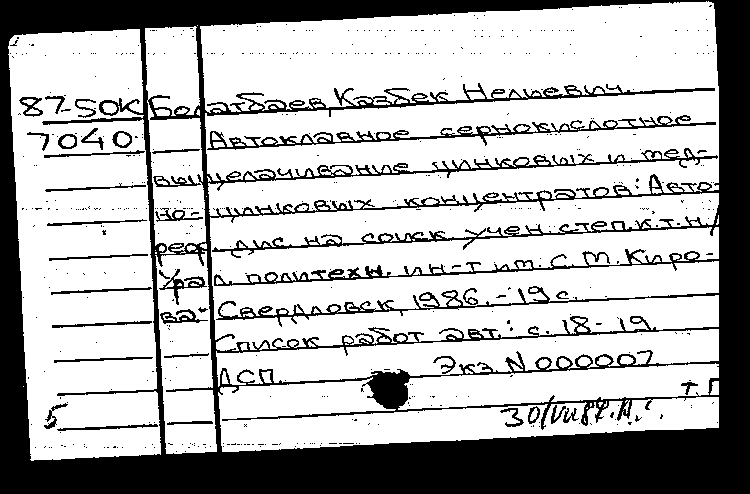 87-50К Болатбаев, Казбек Нелиевич.
7040 Автоклавное сернокислотное
выщелачивание цинковых и мед-
но-цинковых концентратов: Авто-
реф. дис. на соиск. учен. степ. к.т.н./
Урал. политехн. ин-т им. С.М. Киро-
ва.- Свердловск, 1986.-19 с.
Список работ авт.: с. 18-19.
ДСП. Экз. N 000007
т. п
5